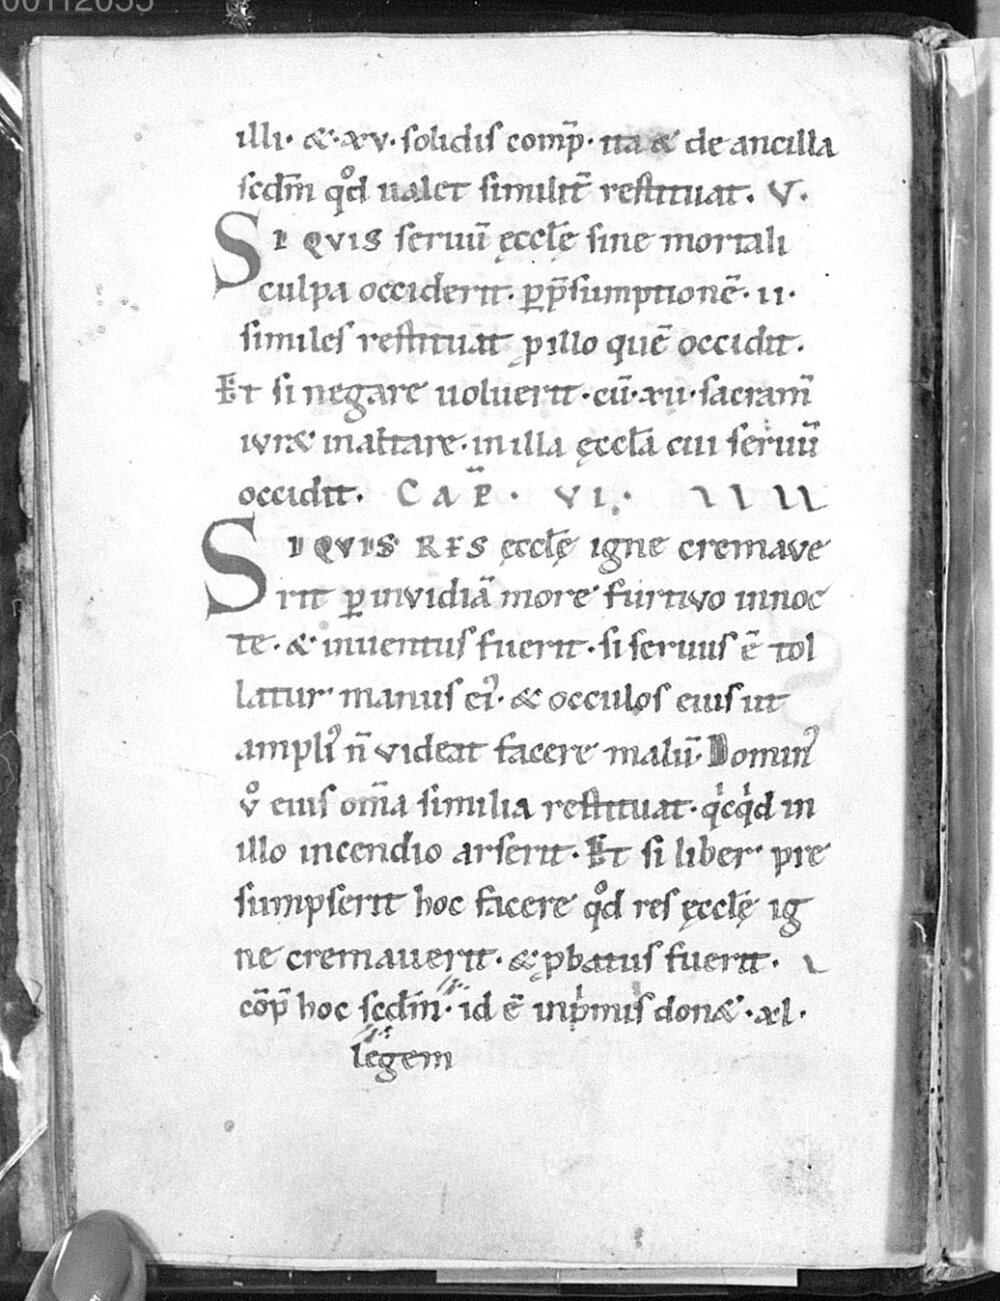 illi· &·xv· solidis comp̄· ita & de ancilla
scdm̄ qͦd ualet similit̄ restituat. V.
SI QVIS seruū ęccl̄ę sine mortali
culpa occiderit. ꝑp̄sumptionē· ii·
similes restituat ꝓ illo quē occidit.
Et si negare uoluerit· cū·xii· sacram̄
iur& in altare· in illa ęccl̄a cui seruū
occidit. CAP̄. VI.
SI QVIS RES ęccl̄ę igne cremave
rit ꝑ invidiā more furtivo in noc
te· & inuentus fuerit· si seruus ē tol
latur manus eiꝰ· & occulos eius ut
ampliꝰ n̄ videat facere malū· Dominꝰ
vͦ eius om̄a similia restituat· qͥcqͥd in
illo incendio arserit· Et si liber pre
sumpserit hoc facere qͦd res ęccl̄ę ig
ne cremauerit· & ꝓbatus fuerit·
cōp̄ hoc scdm̄· id ē inpͥmis don&· xl·
legem